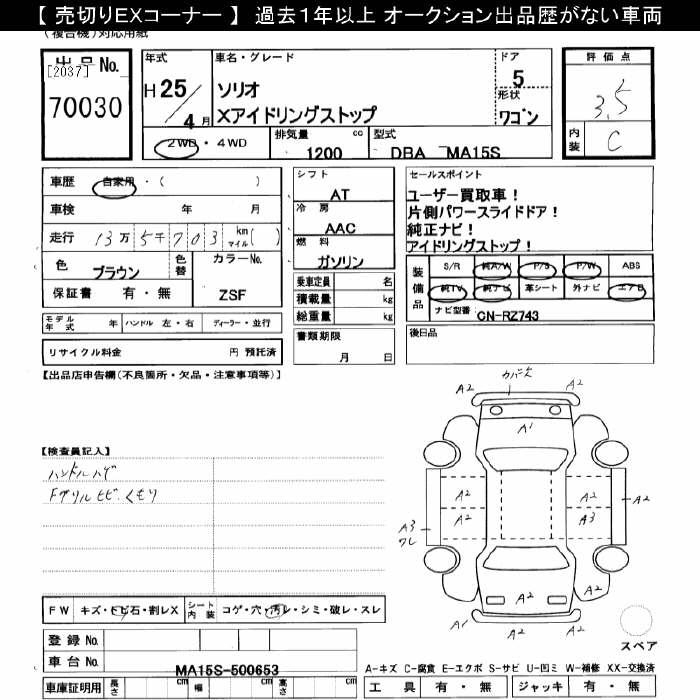 【 売切りEXコーナー 】 過去1年以上 オークション出品歴がない車両
(複合機)対応用紙
出 品 No.
[2037]
70030
年式
H 25/4月
車名・グレード
ソリオ
Xアイドリングストップ
ドア
5
形状
ワゴン
評 価 点
3.5
内装
C
2WD ・ 4WD
排気量 cc
1200
型式
DBA MA15S
車歴 自家用・( )
車検 年 月
走行 13万5千703 km マイル( )
色
ブラウン
色替
カラーNo.
ZSF
保証書 有・無
シフト
AT
冷 房
AAC
燃 料
ガソリン
乗車定員 名
積載量 kg
総重量 kg
セールスポイント
ユーザー買取車!
片側パワースライドドア!
純正ナビ!
アイドリングストップ!
装備品
S/R 純A/W P/S P/W ABS
純TV 純ナビ 革シート 外ナビ エアB
ナビ型番 CN-RZ743
モデル年式 年 ハンドル 左・右 ディーラー・並行
リサイクル料金 円 預託済
書類期限
月 日
後日品
【出品店申告欄(不良箇所・欠品・注意事項等)】
【検査員記入】
ハンドルハゲ
Fグリルヒビ、くもり
A2 カバー欠 A2
A1
A2 A2
A2 A2 A3
A3
ワレ
A2
A2
A1 A2 A2
スペア
FW キズ・トビ石・割レX シート内装 コゲ・穴・汚レ・シミ・破レ・スレ
登録 No.
車台 No.
MA15S-500653
車庫証明用 長さ cm 幅 cm 高さ cm
A-キズ C-腐食 E-エクボ S-サビ U-凹ミ W-補修 XX-交換済
工 具 有 ・ 無 ジャッキ 有 ・ 無